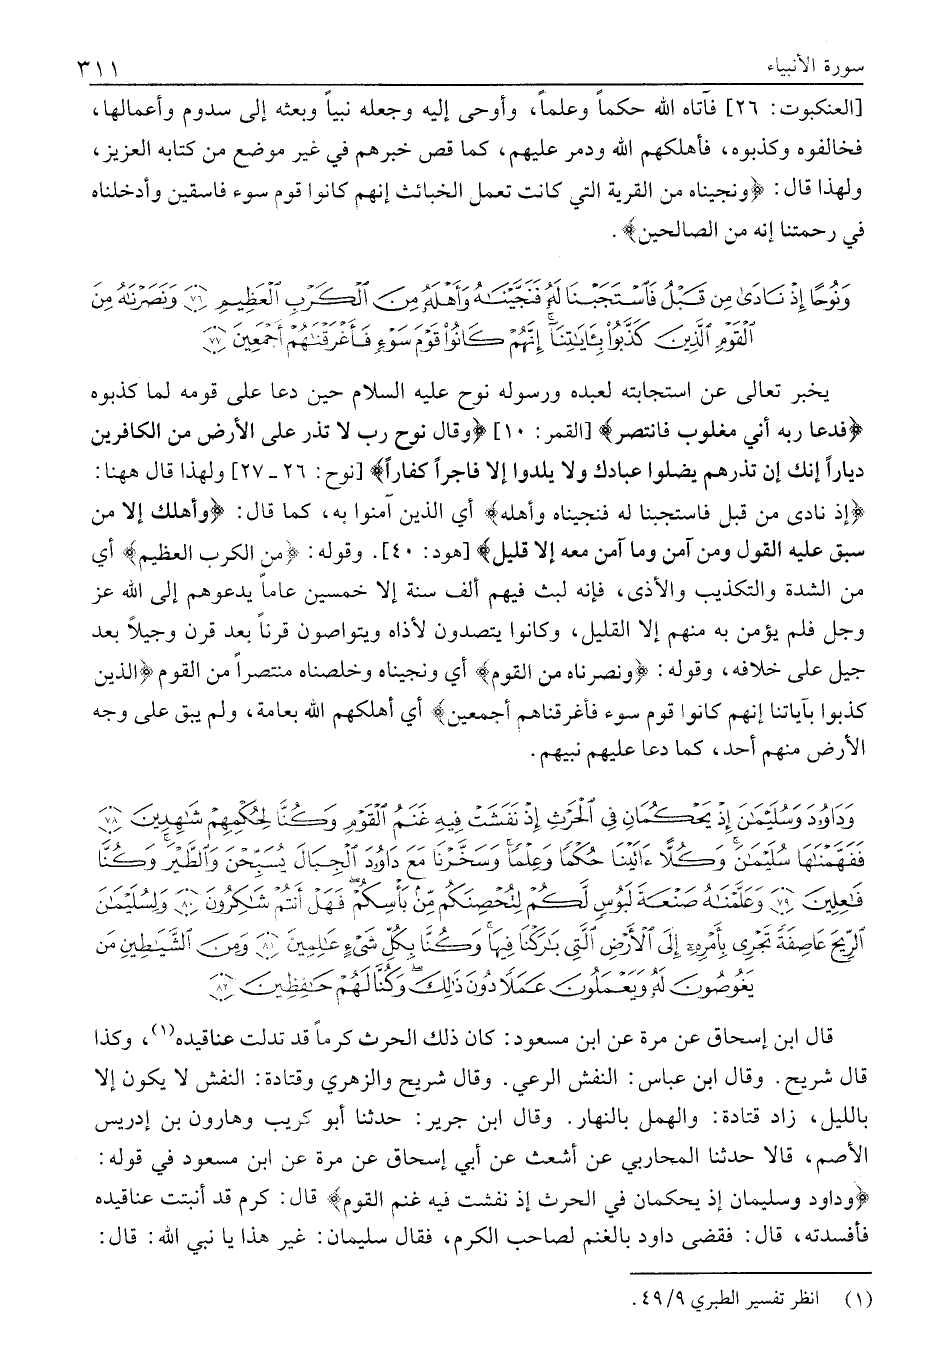 سورة الأنبياء ٣١١
[العنكبوت: ٢٦] فآتاه الله حكماً وعلماً، وأوحى إليه وجعله نبياً وبعثه إلى سدوم وأعمالها،
فخالفوه وكذبوه، فأهلكهم الله ودمر عليهم، كما قص خبرهم في غير موضع من كتابه العزيز،
ولهذا قال: ﴿ونجيناه من القرية التي كانت تعمل الخبائث إنهم كانوا قوم سوء فاسقين وأدخلناه
في رحمتنا إنه من الصالحين﴾.
وَنُوحًا إِذْ نَادَىٰ مِن قَبْلُ فَٱسْتَجَبْنَا لَهُۥ فَنَجَّيْنَٰهُ وَأَهْلَهُۥ مِنَ ٱلْكَرْبِ ٱلْعَظِيمِ ﴿٧٦﴾ وَنَصَرْنَٰهُ مِنَ
ٱلْقَوْمِ ٱلَّذِينَ كَذَّبُوا۟ بِـَٔايَٰتِنَآ ۚ إِنَّهُمْ كَانُوا۟ قَوْمَ سَوْءٍ فَأَغْرَقْنَٰهُمْ أَجْمَعِينَ ﴿٧٧﴾
يخبر تعالى عن استجابته لعبده ورسوله نوح عليه السلام حين دعا على قومه لما كذبوه
﴿فدعا ربه أني مغلوب فانتصر﴾ [القمر: ١٠] ﴿وقال نوح رب لا تذر على الأرض من الكافرين
دياراً إنك إن تذرهم يضلوا عبادك ولا يلدوا إلا فاجراً كفاراً﴾ [نوح: ٢٦ - ٢٧] ولهذا قال ههنا:
﴿إذ نادى من قبل فاستجبنا له فنجيناه وأهله﴾ أي الذين آمنوا به، كما قال: ﴿وأهلك إلا من
سبق عليه القول ومن آمن وما آمن معه إلا قليل﴾ [هود: ٤٠]. وقوله: ﴿من الكرب العظيم﴾ أي
من الشدة والتكذيب والأذى، فإنه لبث فيهم ألف سنة إلا خمسين عاماً يدعوهم إلى الله عز
وجل فلم يؤمن به منهم إلا القليل، وكانوا يتصدون لأذاه ويتواصون قرناً بعد قرن وجيلاً بعد
جيل على خلافه، وقوله: ﴿ونصرناه من القوم﴾ أي ونجيناه وخلصناه منتصراً من القوم ﴿الذين
كذبوا بآياتنا إنهم كانوا قوم سوء فأغرقناهم أجمعين﴾ أي أهلكهم الله بعامة، ولم يبق على وجه
الأرض منهم أحد، كما دعا عليهم نبيهم.
وَدَاوُۥدَ وَسُلَيْمَٰنَ إِذْ يَحْكُمَانِ فِى ٱلْحَرْثِ إِذْ نَفَشَتْ فِيهِ غَنَمُ ٱلْقَوْمِ وَكُنَّا لِحُكْمِهِمْ شَٰهِدِينَ ﴿٧٨﴾
فَفَهَّمْنَٰهَا سُلَيْمَٰنَ ۚ وَكُلًّا ءَاتَيْنَا حُكْمًا وَعِلْمًا ۚ وَسَخَّرْنَا مَعَ دَاوُۥدَ ٱلْجِبَالَ يُسَبِّحْنَ وَٱلطَّيْرَ ۚ وَكُنَّا
فَٰعِلِينَ ﴿٧٩﴾ وَعَلَّمْنَٰهُ صَنْعَةَ لَبُوسٍ لَّكُمْ لِتُحْصِنَكُم مِّنۢ بَأْسِكُمْ ۖ فَهَلْ أَنتُمْ شَٰكِرُونَ ﴿٨٠﴾ وَلِسُلَيْمَٰنَ
ٱلرِّيحَ عَاصِفَةً تَجْرِى بِأَمْرِهِۦٓ إِلَى ٱلْأَرْضِ ٱلَّتِى بَٰرَكْنَا فِيهَا ۚ وَكُنَّا بِكُلِّ شَىْءٍ عَٰلِمِينَ ﴿٨١﴾ وَمِنَ ٱلشَّيَٰطِينِ مَن
يَغُوصُونَ لَهُۥ وَيَعْمَلُونَ عَمَلًا دُونَ ذَٰلِكَ ۖ وَكُنَّا لَهُمْ حَٰفِظِينَ ﴿٨٢﴾
قال ابن إسحاق عن مرة عن ابن مسعود: كان ذلك الحرث كرماً قد تدلت عناقيده(١)، وكذا
قال شريح. وقال ابن عباس: النفش الرعي. وقال شريح والزهري وقتادة: النفش لا يكون إلا
بالليل، زاد قتادة: والهمل بالنهار. وقال ابن جرير: حدثنا أبو كريب وهارون بن إدريس
الأصم، قالا حدثنا المحاربي عن أشعث عن أبي إسحاق عن مرة عن ابن مسعود في قوله:
﴿وداود وسليمان إذ يحكمان في الحرث إذ نفشت فيه غنم القوم﴾ قال: كرم قد أنبتت عناقيده
فأفسدته، قال: فقضى داود بالغنم لصاحب الكرم، فقال سليمان: غير هذا يا نبي الله: قال:
(١) انظر تفسير الطبري ٤٩/٩.